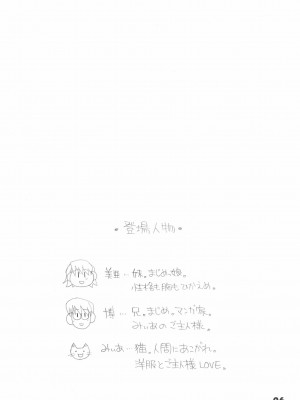 ・登場人物・
… 妹。まじめ。娘。
性格も胸もひかえめ。
博… 兄。まじめ。マンガ家。
みぃあのご主人様。
みぃあ… 猫。人間にあこがれ。
洋服とご主人様LOVE。
06